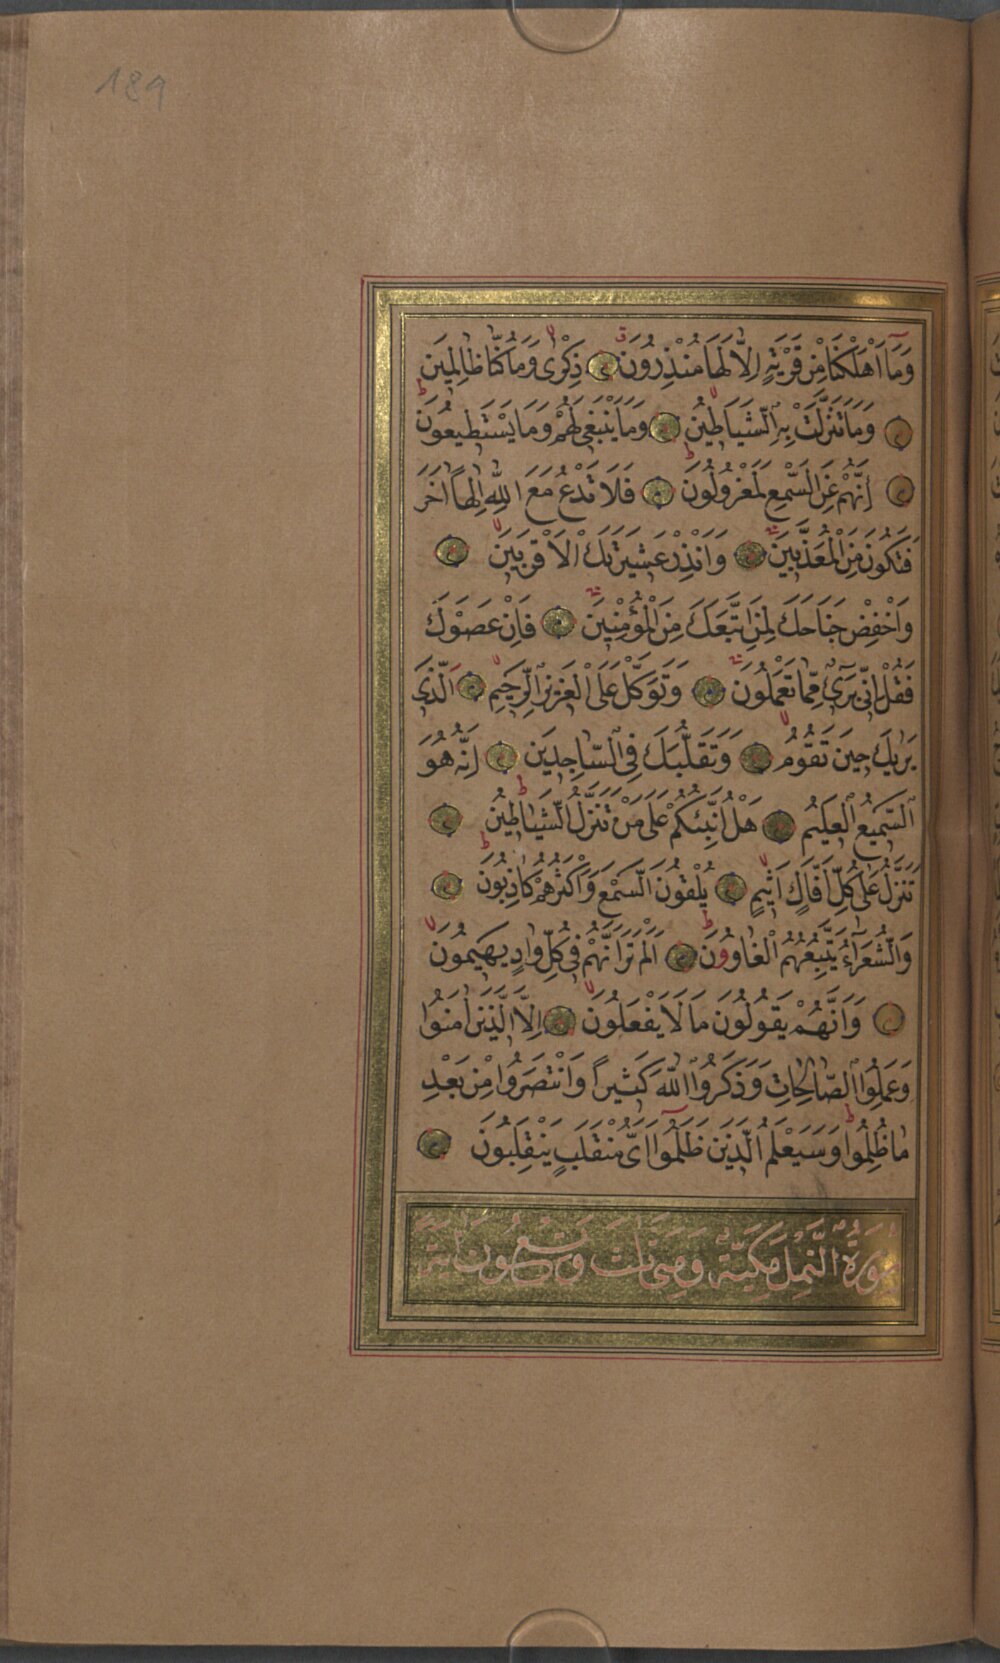 189
وَمَٓا اَهْلَكْنَا مِنْ قَرْيَةٍ اِلَّا لَهَا مُنْذِرُونَ ذِكْرٰى وَمَا كُنَّا ظَالِمِينَ
وَمَا تَنَزَّلَتْ بِهِ الشَّيَاطِينُ وَمَا يَنْبَغِي لَهُمْ وَمَا يَسْتَطِيعُونَ
اِنَّهُمْ عَنِ السَّمْعِ لَمَعْزُولُونَ فَلَا تَدْعُ مَعَ اللّٰهِ اِلٰهاً اٰخَرَ
فَتَكُونَ مِنَ الْمُعَذَّبِينَ وَاَنْذِرْ عَشِيرَتَكَ الْاَقْرَبِينَ
وَاخْفِضْ جَنَاحَكَ لِمَنِ اتَّبَعَكَ مِنَ الْمُؤْمِنِينَ فَاِنْ عَصَوْكَ
فَقُلْ اِنِّي بَرِٓيءٌ مِمَّا تَعْمَلُونَ وَتَوَكَّلْ عَلَى الْعَزِيزِ الرَّحِيمِ اَلَّذِي
يَرٰيكَ حِينَ تَقُومُ وَتَقَلُّبَكَ فِي السَّاجِدِينَ اِنَّهُ هُوَ
السَّمِيعُ الْعَلِيمُ هَلْ اُنَبِّئُكُمْ عَلٰى مَنْ تَنَزَّلُ الشَّيَاطِينُ
تَنَزَّلُ عَلٰى كُلِّ اَفَّاكٍ اَثِيمٍ يُلْقُونَ السَّمْعَ وَاَكْثَرُهُمْ كَاذِبُونَ
وَالشُّعَرَٓاءُ يَتَّبِعُهُمُ الْغَاوُونَ اَلَمْ تَرَ اَنَّهُمْ فِي كُلِّ وَادٍ يَهِيمُونَ
وَاَنَّهُمْ يَقُولُونَ مَا لَا يَفْعَلُونَ اِلَّا الَّذِينَ اٰمَنُوا
وَعَمِلُوا الصَّالِحَاتِ وَذَكَرُوا اللّٰهَ كَثِيراً وَانْتَصَرُوا مِنْ بَعْدِ
مَا ظُلِمُوا وَسَيَعْلَمُ الَّذِينَ ظَلَمُٓوا اَيَّ مُنْقَلَبٍ يَنْقَلِبُونَ
سُورَةُ النَّمْلِ مَكِّيَّةٌ وَهِيَ ثَلٰثَ وَتِسْعُونَ اٰيَةً